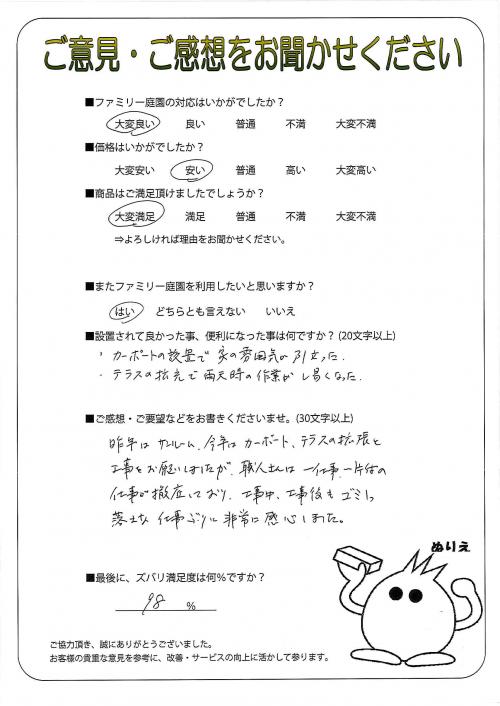 ご意見・ご感想をお聞かせください
■ファミリー庭園の対応はいかがでしたか？
大変良い 良い 普通 不満 大変不満
■価格はいかがでしたか？
大変安い 安い 普通 高い 大変高い
■商品はご満足頂けましたでしょうか？
大変満足 満足 普通 不満 大変不満
⇒よろしければ理由をお聞かせください。
■またファミリー庭園を利用したいと思いますか？
はい どちらとも言えない いいえ
■設置されて良かった事、便利になった事は何ですか？(20文字以上)
・カーポートの設置で家の雰囲気が引立った.
・テラスの拡充で雨天時の作業がし易くなった.
■ご感想・ご要望などをお書きくださいませ。(30文字以上)
昨年はサンルーム、今年はカーポート、テラスの拡張と
工事をお願いしましたが、職人さんは一仕事一片付の
仕事が徹底しており、工事中、工事後もゴミ
仕事ぶりに非常に感心しました。
ぬりえ
■最後に、ズバリ満足度は何％ですか？
98 ％
ご協力頂き、誠にありがとうございました。
お客様の貴重な意見を参考に、改善・サービスの向上に活かして参ります。